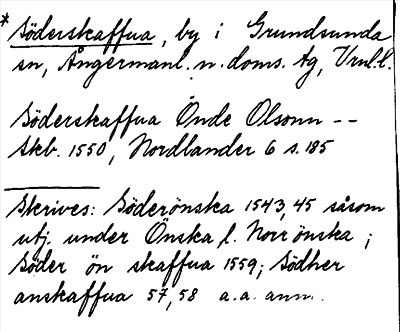 * Söderskaffua, by i Grundsunda
sn, Ångermanl. n. doms. tg, Vnl. l.
Söderskaffua Önde Olsonn --
Skb. 1550, Nordlander 6 s. 185
Skrives: Söderönska 1543, 45 såsom
utj. under Önska l. Norrönska;
Söder ön skaffua 1559; Södher
anskaffua 57, 58 a.a. anm.